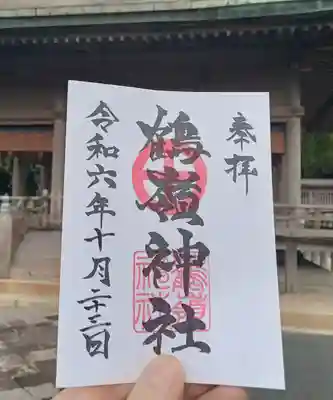 奉拝
鶴嶺神社
令和六年十月二十三日